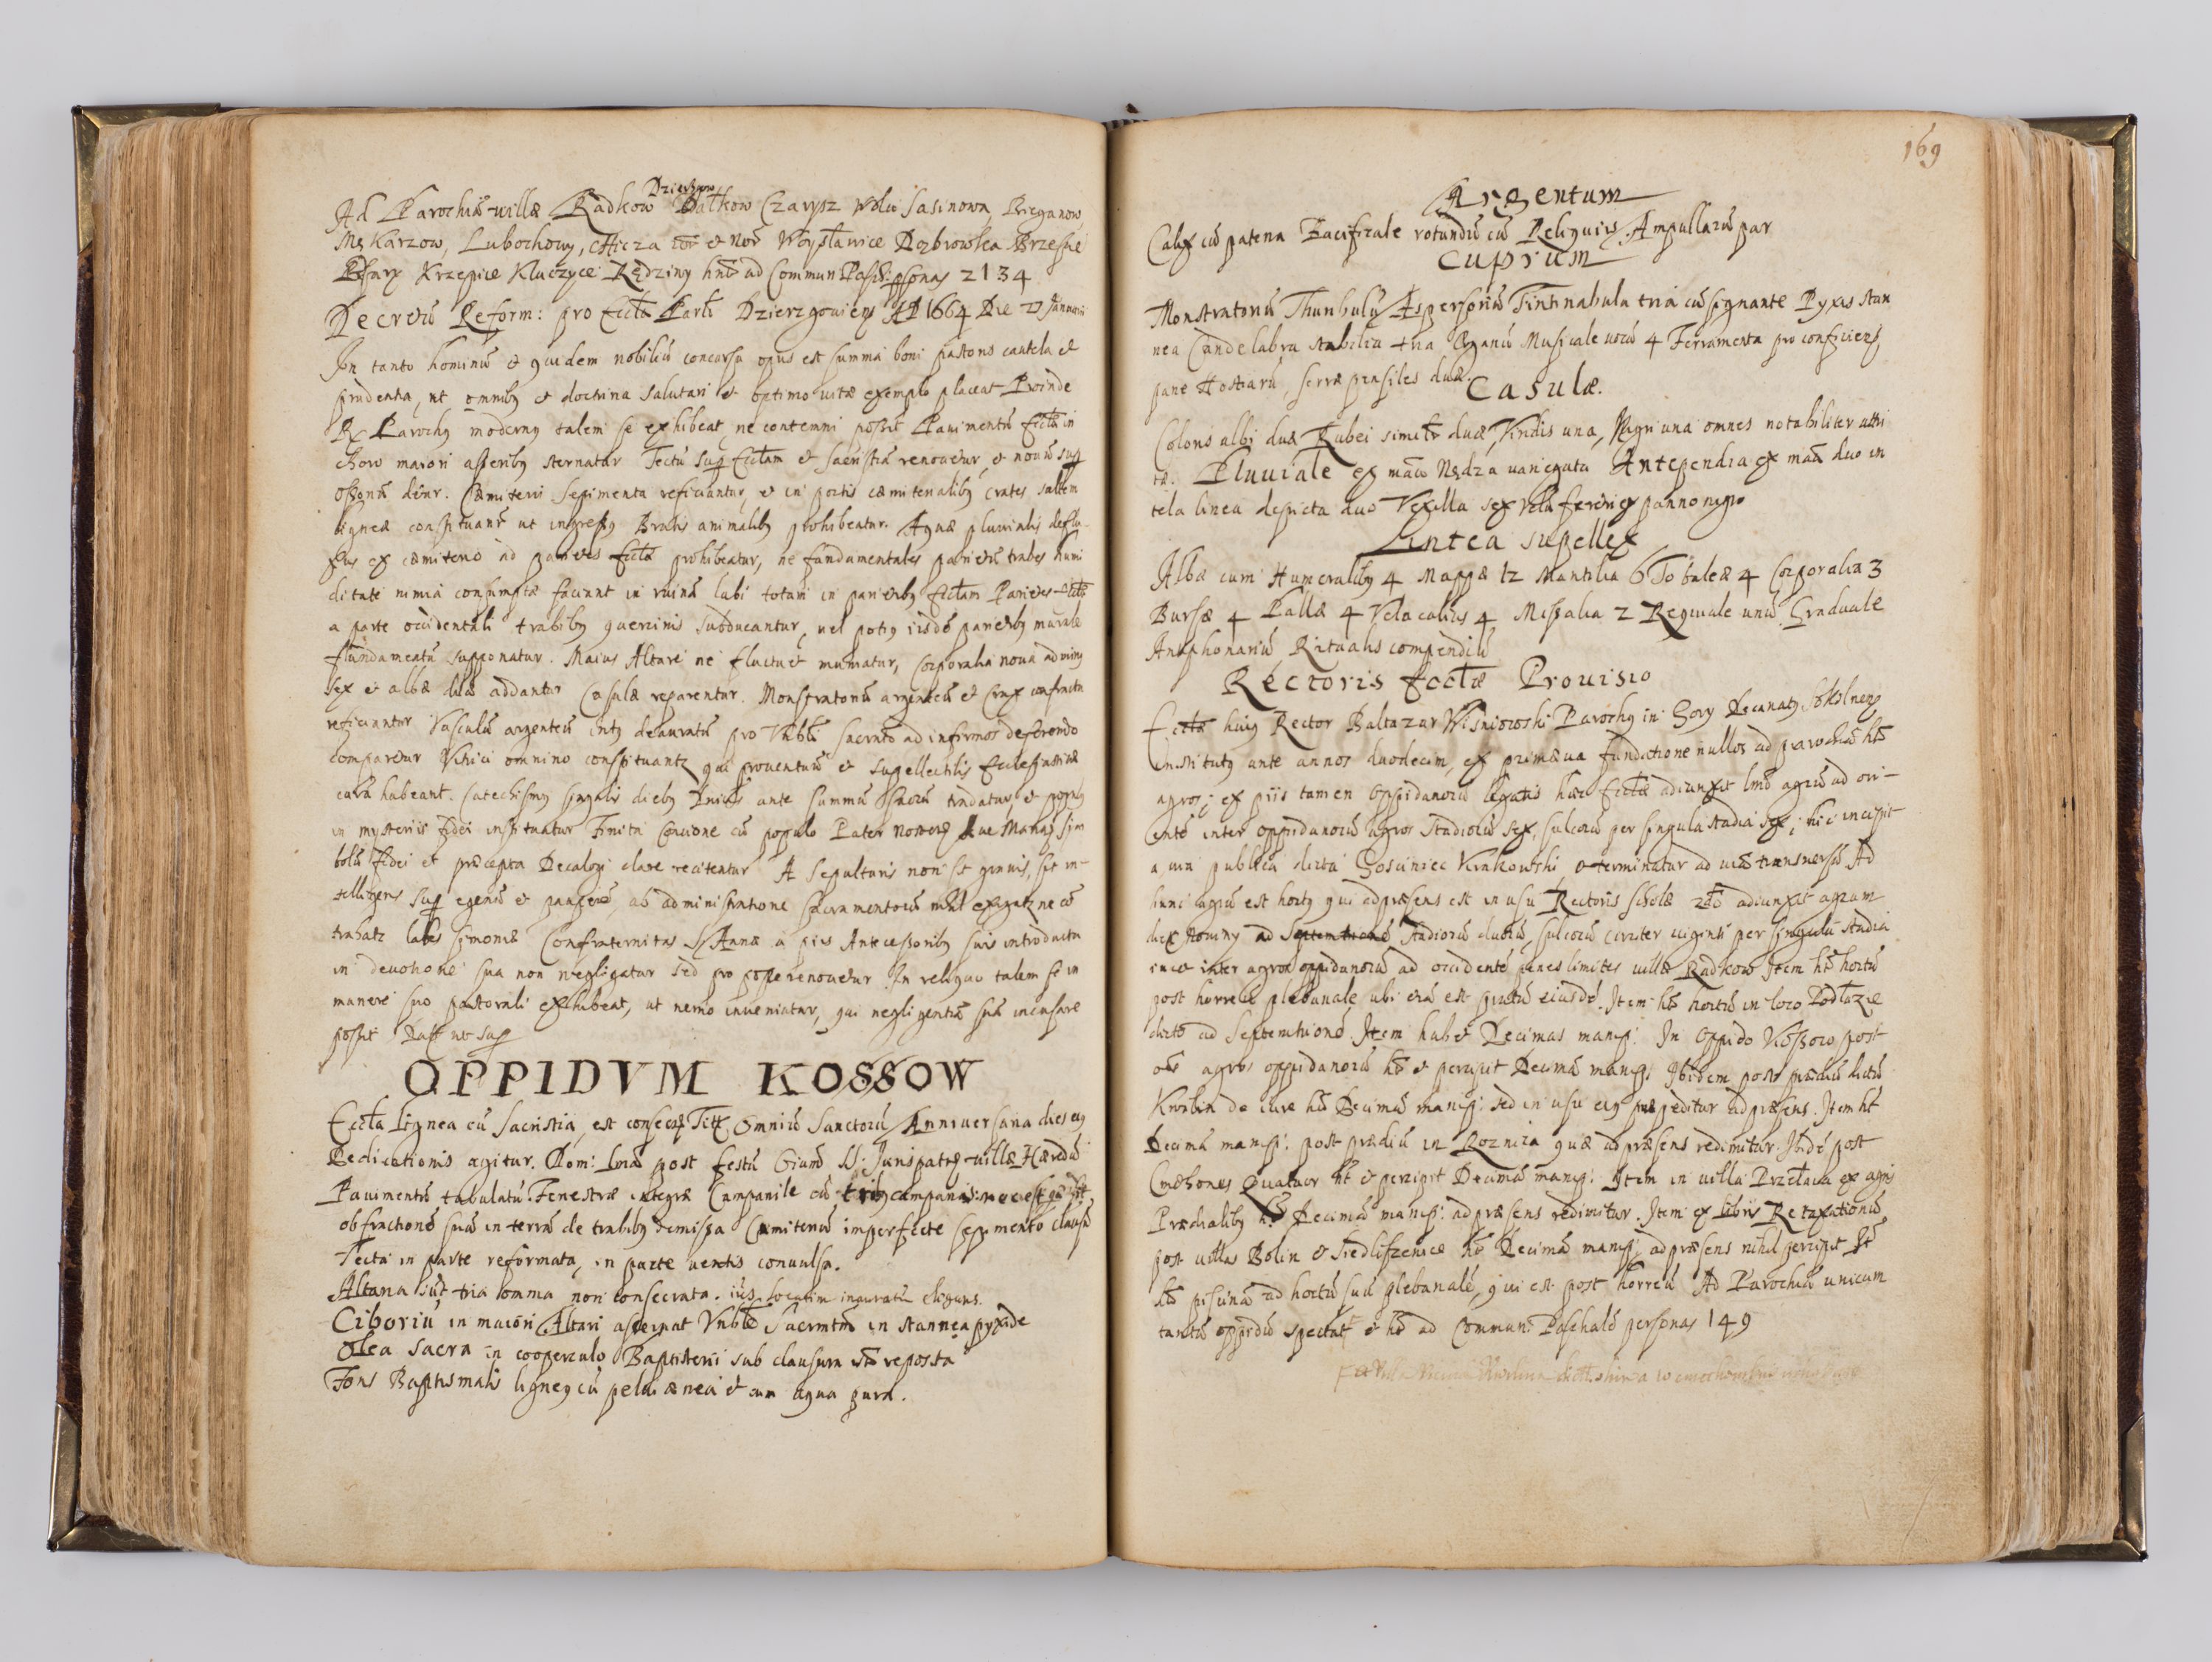 Dzierzgow
Ad Parochiã villæ Radkow Dalkow Czarysz Wola Sasinowa, Bieganow
Mękarzow, Lubochowy, Chicza et Woysławice Dąbrowska Brzeście
Krzepice Kluczyce Rędziny hnt ad Commun Pasch: psonas 2134
Decretũ Reform: pro Eccła Parti Dzierzgoviens AD 1664 Die 27 Januarii
In tanto hominũ et quidem nobiliũ concursu opus est summa boni pastoris cautela et
prudentia, ut omnibꝫ et doctrina salutari et optimo vitæ exemplo placeat Proinde
R Parochꝫ modernꝫ talem se exhibeat, ne contemni possit Pauimentũ Ecclæ in
choro maiori asseribꝫ sternatur Tectũ sup Ecclam et sacristiã renouetur, et nouũ sup
detur. Cæmiterii sepimenta reficiantur, et in portis cæmiterialibꝫ crates saltem
ligneæ constituant ut ingressꝫ Brutis animalibꝫ prohibeatur. Aquæ pluvialis deflu-
xus ex cæmiterio ad parietes Ecclæ prohibeatur, ne fundamentales parietũ trabes humi
ditate nimia consumptæ faciant in ruinã labi totam in parietibꝫ Ecclam Parietes Ecclæ
a parte occidentali trabibꝫ quercinis subducantur, vel potiꝫ iisdẽ parietibꝫ murale
fundamentũ supponatur. Maius Altare ne fluctuet muniatur, Corporalia noua adminꝫ
sex et albæ duæ addantur Casulæ reparentur. Monstratoriũ argenteũ et Crux confracta
reficiantur Vasculũ argenteũ intꝫ deauratũ pro Vnbli Sacrnto ad infirmos deferendo
comparetur Vitrici omnino constituantr qui prouentuũ et supellectilis Ecclesiasticæ
curã habeant. Catechismꝫ singulis diebꝫ Dnicis ante summũ sacrũ tradatur, et popuꝫ
in mysteriis Fidei instituatur Finita Concione cũ populo Pater noster Aue Maria Sim
bolũ Fidei et præcepta Decalogi clare recitentur A sepulturis non sit grauis, sit in-
telligens sup egenũ et pauperẽ, ab administratione sacramentorũ nihil exigatr ne cõ
trahatr labes simoniæ Confraternitas S. Annæ a piis Antecessoribꝫ suis introducta
in deuotione sua non negligatur sed pro posse renouetur In reliquo talem se in
munere suo pastorali exhibeat, ut nemo inueniatur, qui negligentiã suã incusare
possit Datt ut sup
OPPIDVM KOSSOW
Eccła lignea cũ Sacristia, est consecr Titt Omniũ Sanctorũ Anniuersaria dies eiꝫ
Dedicationis agitur. Dom: Ima post festũ Oiũm SS. Jurispatrꝫ villæ Hæredũ
Pauimentũ tabulatũ. Fenestræ integræ Campanile cũ tribꝫ campanis
ob fractionẽ suã in terrã de trabibꝫ demissa Cæmiteriũ imperfecte sepimento clausũ
Tecta in parte reformata, in parte ventis conuulsa.
Altaria sũt tria omnia non consecrata.
Ciboriũ in maiori Altari asseruat Vnble Sacrmtm in stannea pyxide
Olea Sacra in cooperculo Baptisterii sub clausura reposita
Fons Baptismalis ligneꝫ cũ pelui ænea et cum aqua pura.
169
Argentum
Calix cũ patena Pacificale rotundũ cũ Reliquiis Ampullarũ par
Cuprum
Monstratoriũ Thuribulũ Aspersoriũ Tintinabula tria cũ signante Pyxis stan
nea Candelabra stabilia tria Organũ Musicale vocũ 4 Ferramenta pro conficiens
pane Hostiarũ, serræ pensiles duæ.
Casulæ.
Coloris albi duæ Rubei similtr duæ, Viridis una, Nigri una omnes notabiliter attri
tæ. Pluuiale ex mãa Nędza variegata Antependia ex mãa duo in
tela linea depicta duo Vexilla sex Vela ex panno nigro
Lintea supellex
Albæ cum Humeralibꝫ 4 Mappæ 12 Mantilia 6 Tobaleæ 4 Corporalia 3
Bursæ 4 Pallæ 4 Vela calicis 4 Missalia 2 Requiale unũ Graduale
Antiphonariũ Ritualis compendiũ
Rectoris Ecclæ Prouisio
Ecclæ huiꝫ Rector Baltazar Wisniowski Parochꝫ in Gory Decanatꝫ Sokolnens
institutꝫ ante annos duodecim, ex primæua fundatione nullos ad parochiã hẽt
agros; ex piis tamen oppidanorũ legatis huic Ecclæ adiunxit Imõ agrũ ad ori-
entẽ inter oppidanorũ agros Stadiorũ sex, sulcorũ per singula stadia sex; hic incipit
a via publica dicta Gosciniec Krakowski, et terminatur ad viã transuersã Ad
hunc agrũ est hortꝫ qui ad præsens est in usu Rectoris scholæ 2do adiunxit agrum
ad Septemtrionẽ Stadiorũ duorũ, sulcorũ circiter viginti per singula stadia
inter agros oppidanorũ ad occidentẽ penes limites villæ Radkow Item hẽt hortũ
post horreũ plebanale, ubi etiã est pratũ eiusdẽ. Item hẽt hortũ in loco Podłazie
dicto ad Septemtrionẽ. Item habet Decimas manip: In Oppido Kossow post
oẽs agros oppidanorũ hẽt et percipit Decimã manip: Ibidem post prædiũ dictũ
de iure hẽt Decimã manip: sed in usu eiꝫ præpeditur ad præsens. Item hẽt
Decimã manip: post prædiũ in Roznica quæ ad præsens redimitur. Ibidẽ post
Cmethones Quatuor hẽt et percipit Decimã manip: Item in villa Przełaia ex agris
Prædialibꝫ hẽt Decimã manip: ad præsens redimitur. Item ex libris Retaxationũ
post villas Bolin et Siedliszcze hẽt Decimã manip: ad præsens nihil percipit It
hẽt piscinã ad hortũ suũ plebanalẽ, qui est post horreũ Ad Parochiã unicum
tantũ oppidũ spectat et hẽt ad Commun: Paschalẽ personas 149